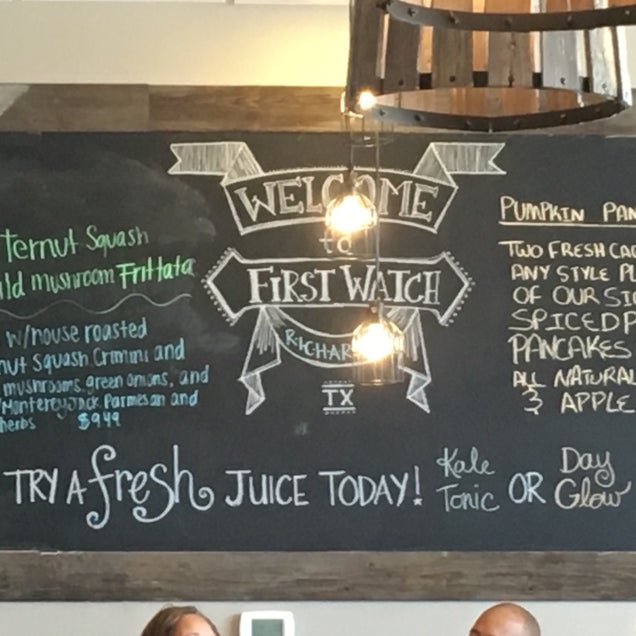 ternut Squash
ld mushroom Frittata
w/house roasted
nut Squash Crimini and
mushrooms, green onions, and
Monterey Jack, Parmesan and
herbs $9.49
WELCOME
to
FIRST WATCH
RICHAR
TX
PUMPKIN PAN
TWO FRESH CAG
ANY STYLE PL
OF OUR SI
SPICED P
PANCAKES
ALL NATURAL
& APPLE
TRY A fresh JUICE TODAY! Kale Tonic OR Day Glow